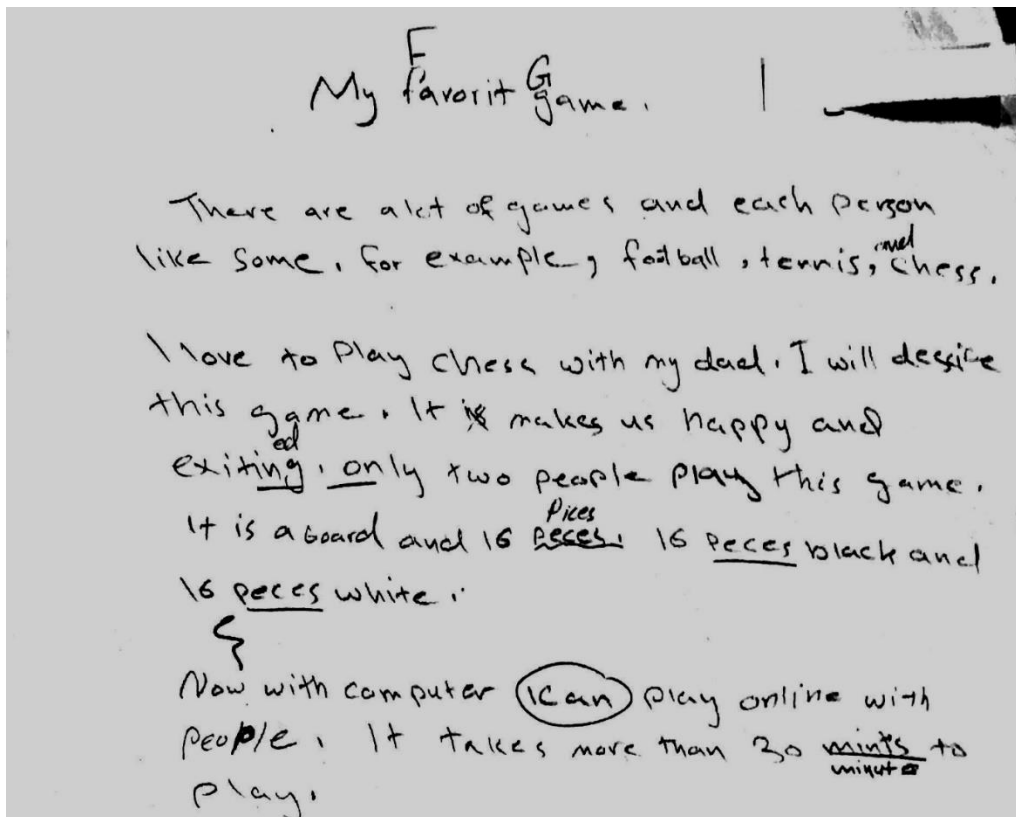 F G
My favorit game. 1
There are alot of games and each person
like some. for example, football, tennis, and chess.
I love to play chess with my dad. I will descice
this game. It is makes us happy and
ed
exiting. only two people play this game.
Pices
It is a board and 16 peces. 16 peces black and
16 peces white.
Now with computer ican play online with
people. It takes more than 30 mints to
minute
play.